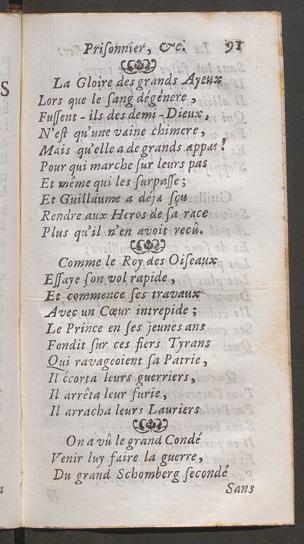 Prisonnier, &c. 91
La Gloire des grands Ayeux
Lors que le ſang dégénere,
Fuſſent-ils des demi-Dieux,
N'eſt qu'une vaine chimere,
Mais qu'elle a de grands appas!
Pour qui marche ſur leurs pas
Et même qui les ſurpaſſe;
Et Guillaume a déja ſçu
Rendre aux Heros de ſa race
Plus qu'il n'en avoit recu.
Comme le Roy des Oiſeaux
Eſſaye ſon vol rapide,
Et commence ſes travaux
Avec un Cœur intrepide;
Le Prince en ſes jeunes ans
Fondit ſur ces fiers Tyrans
Qui ravageoient ſa Patrie,
Il écorta leurs guerriers,
Il arrêta leur furie,
Il arracha leurs Lauriers
On a vû le grand Condé
Venir luy faire la guerre,
Du grand Schomberg ſecondé
Sans